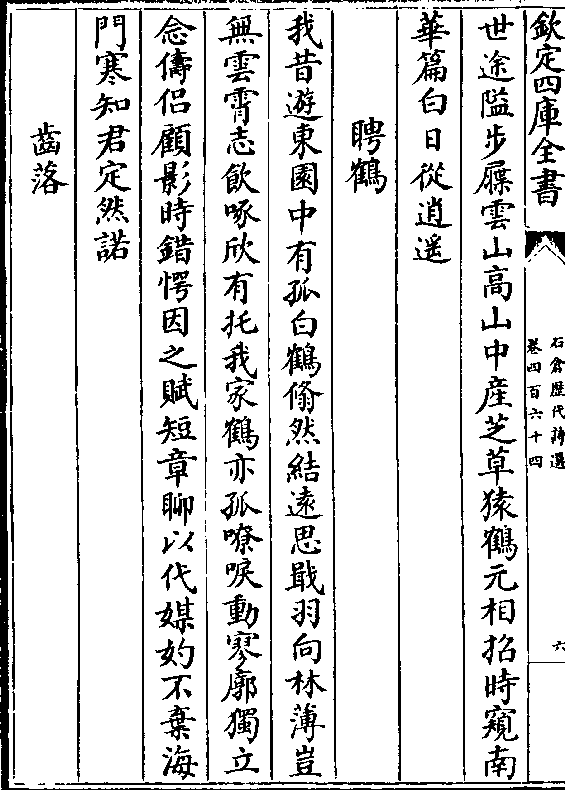 欽定四庫全書
石倉歴代詩選
卷四百六十四
六
世途隘步屧雲山高山中産芝草猿鶴元相招時窺南
華篇白日從逍遥
聘鶴
我昔遊東園中有孤白鶴翛然結遠思戢羽向林薄豈
無雲霄志飲啄欣有托我家鶴亦孤嘹唳動寥廓獨立
念儔侣顧影時錯愕因之賦短章聊以代媒妁不棄海
門寒知君定然諾
齒落